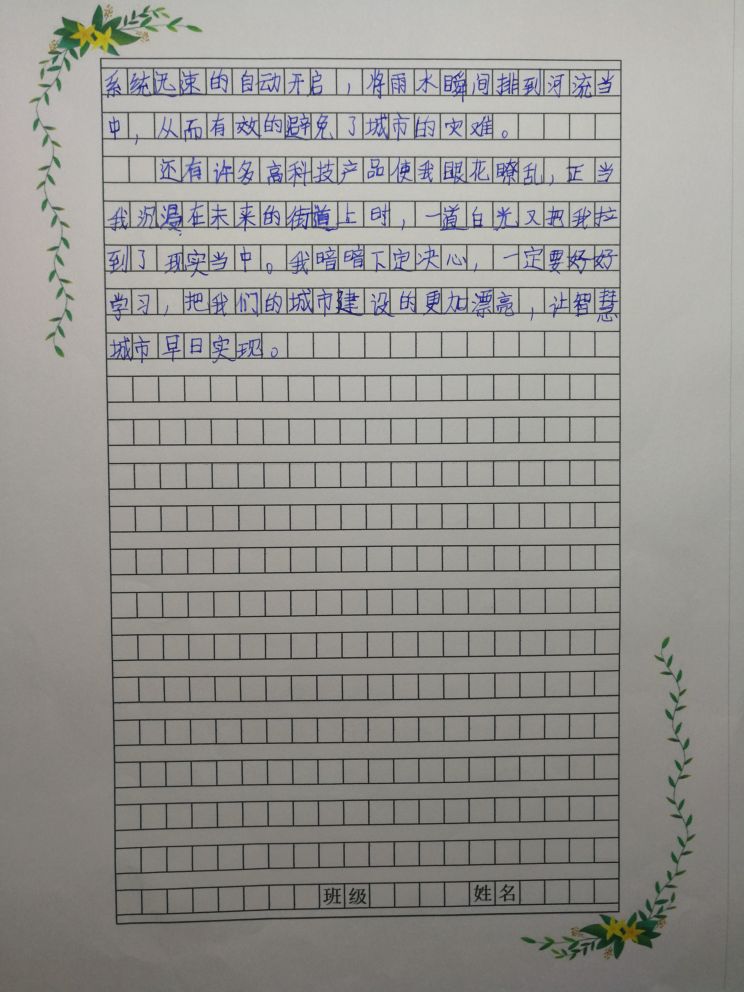 系统迅速的自动开启，将雨水瞬间排到河流当
中，从而有效的避免了城市的灾难。
还有许多高科技产品使我眼花瞭乱，正当
我沉浸在未来的街道上时，一道白光又把我拉
到了现实当中。我暗暗下定决心，一定要好好
学习，把我们的城市建设的更加漂亮，让智慧
城市早日实现。
班级 姓名